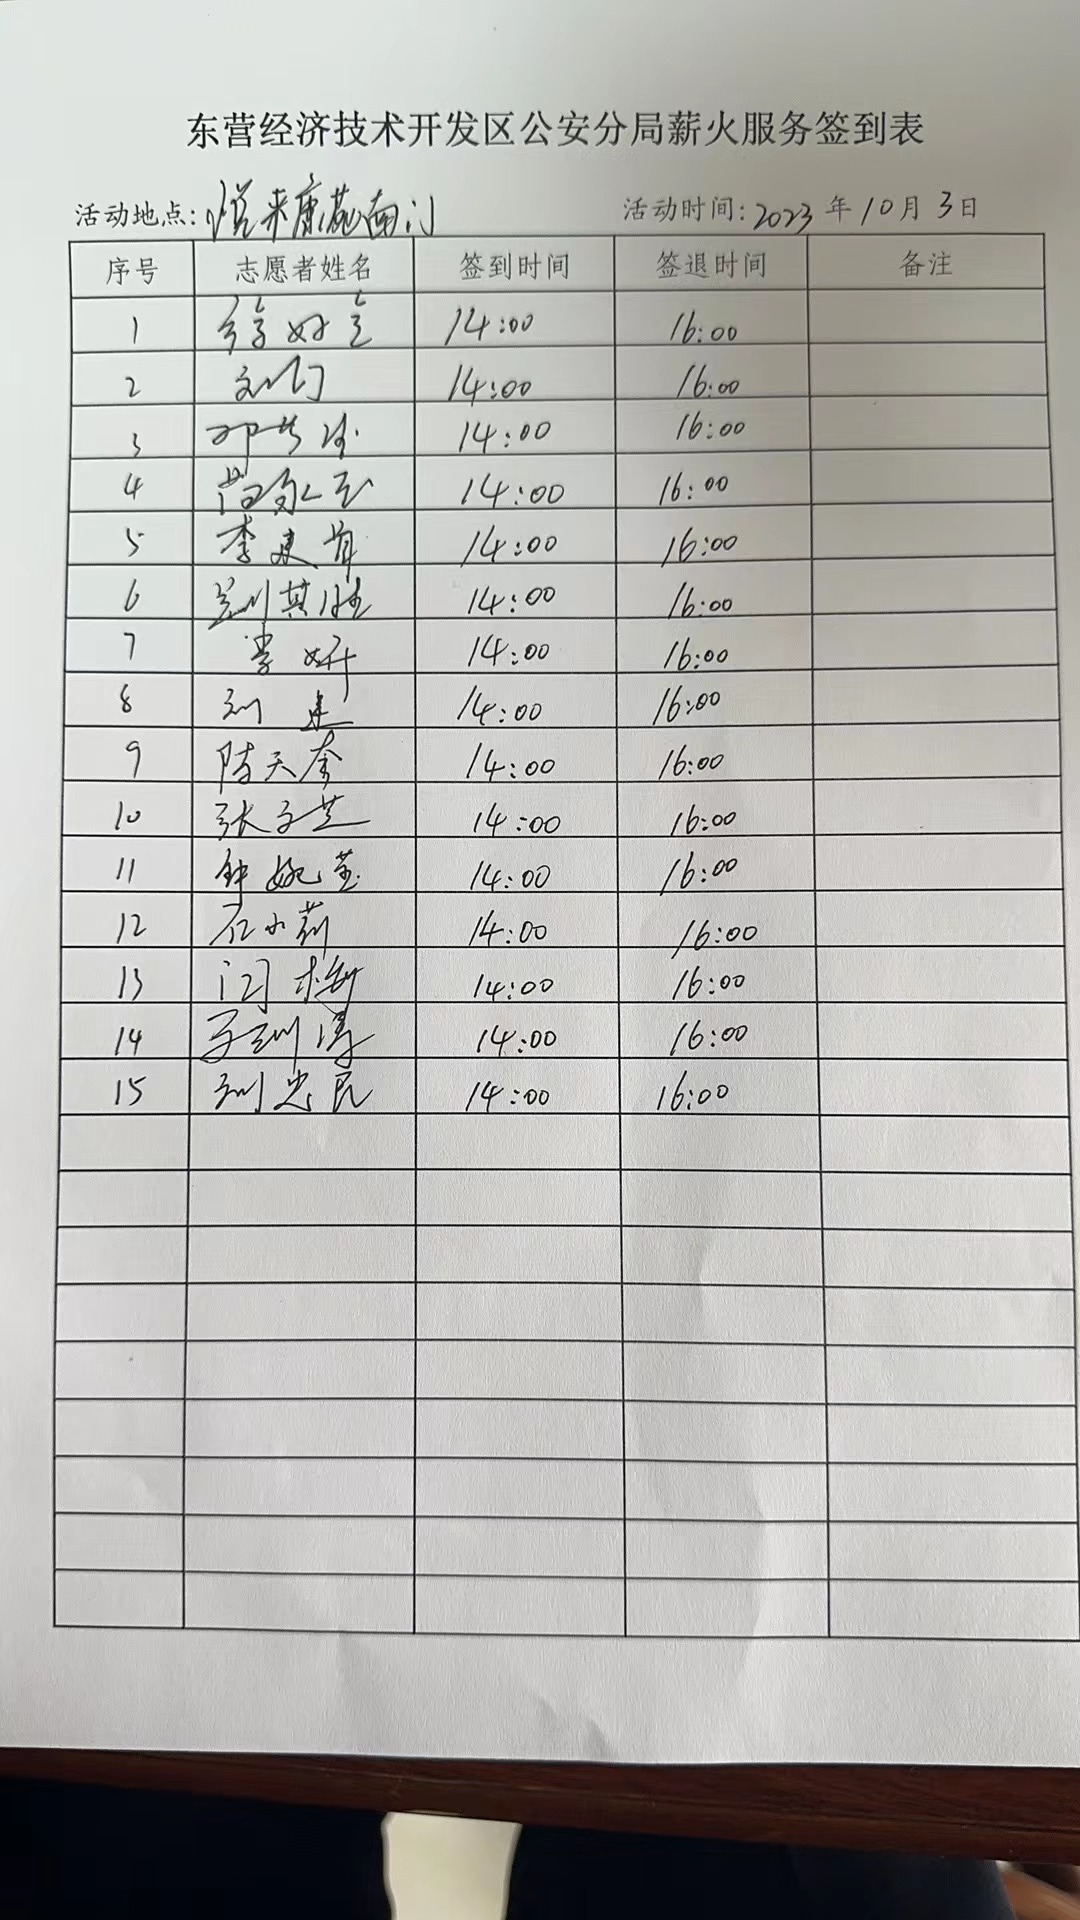 东营经济技术开发区公安分局薪火服务签到表
活动地点: 悦来康苑南门 活动时间: 2023 年 10 月 3 日
序号 志愿者姓名 签到时间 签退时间 备注
1 14:00 16:00
2 14:00 16:00
3 14:00 16:00
4 14:00 16:00
5 李建 14:00 16:00
6 其胜 14:00 16:00
7 李妍 14:00 16:00
8 刘建 14:00 16:00
9 陈天奎 14:00 16:00
10 张子芝 14:00 16:00
11 钟婉莹 14:00 16:00
12 石小莉 14:00 16:00
13 闫梅 14:00 16:00
14 14:00 16:00
15 刘忠民 14:00 16:00